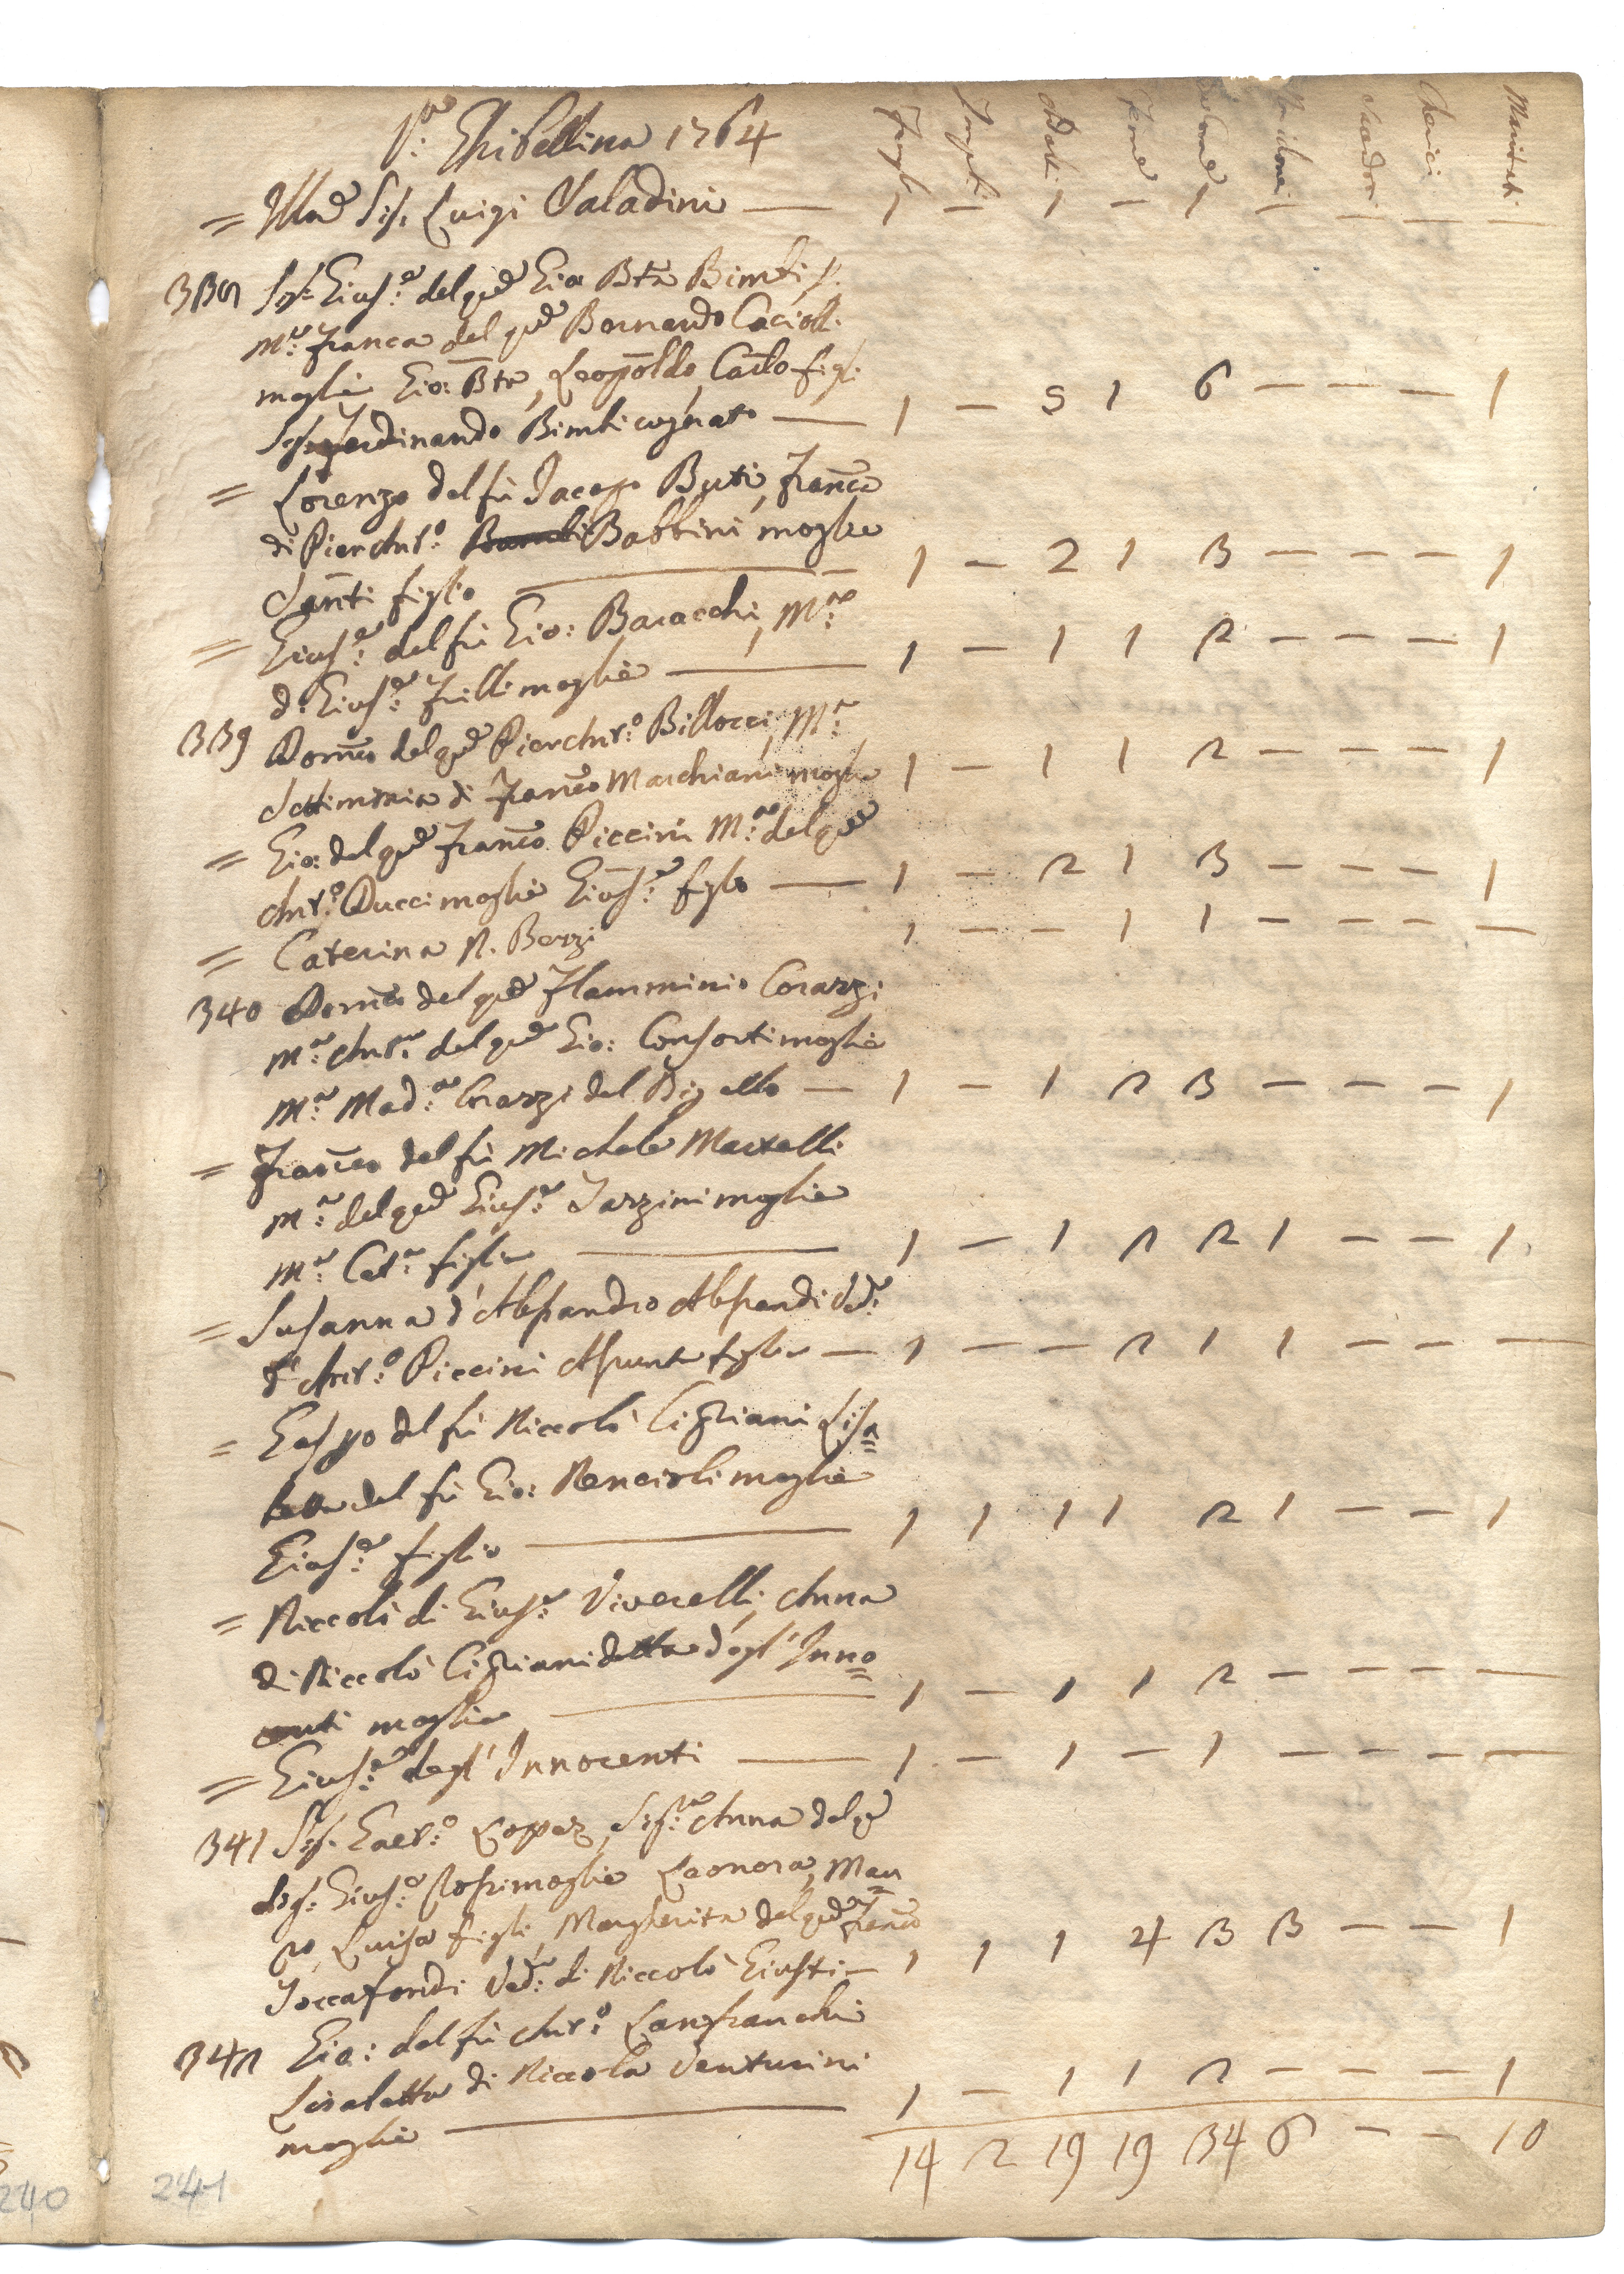 Via Ghibellina 1764
Famigl: Impub: Maschi Femē Com̄e Ser: Chierici Mariteti
= Illmo Sig.r Luigi Valadini — 1 — 1 — 1 — — — —
338 Sig.r Gius.e del qm̄ Gio Btā Bimbi
M.a Franca del qm̄ Bernardo Cacioll:
moglie Gio: Btā, Leopoldo, Carlo figli
Sig.r Ferdinando Bimbi cognato — 1 — 5 1 6 — — — 1
= Lorenzo del fù Jacopo Buti, Fran̄ca
di Pier Ant.o Babbini moglie
Santi figlio — 1 — 2 1 3 — — — 1
= Gius.e del fù Gio: Baracchi, M.a
d: Gius.e Frilli moglie — 1 — 1 1 2 — — — 1
339 Dom̄co del qm̄ Pier Ant.o Billocci, M.a
Settimmia di Fran̄co Marchiani moglie 1 — 1 1 2 — — — 1
= Gio: del qm̄ Fran̄co Piccini M.a del qm̄
Ant.o Ducci moglie Gius.e figlio — 1 — 2 1 3 — — — 1
= Caterina N. Berzi 1 — — 1 1 — — — —
340 Dom̄co del qm̄ Flamminio Corazzi
M.a Ant.a del qm̄ Gio: Consorti moglie
M.a Mad.a Corazzi del Bigallo — 1 — 1 2 3 — — — 1
= Fran̄co del fù Michele Martelli
M.a del qm̄ Gius.e Tarzini moglie
M.a Cat.a figlia — 1 — 1 2 2 1 — — 1
= Susanna d'Alessandro Alessandri Ved.a
d'Ant.o Piccini Assunta figlia — 1 — — 2 1 1 — — —
= Gaspo del fù Niccolò Cigliani Lisa=
betta del fù Gio: Nencioli moglie
Gius.e figlio — 1 1 1 1 2 1 — — 1
= Niccolò di Gius.e Viverelli, Anna
di Niccolò Cigliani detta degl'Inno=
centi moglie — 1 — 1 1 2 — — — —
= Gius.e degl'Innocenti — 1 — 1 — 1 — — — —
341 Sig.r Gaet.o Lopez, Sig.ra Anna del qm̄
Sig.r Gius.e Rossi moglie Leonora, Mau=
ro, Luisa figli, Margherita del qm̄ Fran̄co
Toccafondi Ved.a di Niccolò Giusti — 1 1 1 4 3 3 — — 1
342 Gio: del fù Ant.o Lanfranchi
Lisabetta di Niccola Venturini
moglie — 1 — 1 1 2 — — — 1
14 2 19 19 34 6 — — 10
240 241